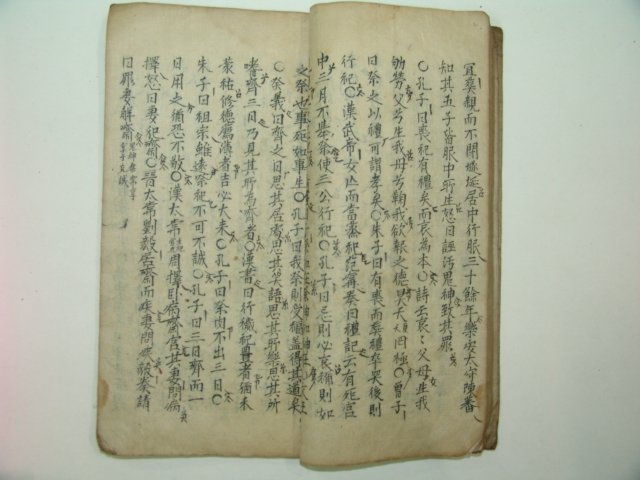 冝葬親而不閉埏埏居中行服三十餘年樂安太守陳蕃
知其五子皆服中所生怒曰誣汚鬼神致其罪
○孔子曰喪祀有禮矣而哀為本○詩云哀哀父母生我
劬勞父兮生我母兮鞠我欲報之德昊天罔極○曾子
曰祭之以禮可謂孝矣○朱子曰有喪而奉禮卒哭後則
行祀○漢武帝女亡而當禮記云有死宮
中三月不擧祭使三公行祀○孔子曰忌則必哀禰則如
之祭也事死如事生○孔子曰我祭則受福盖得其道矣
○祭義曰齊之日思其居處思其笑語思其所樂思其所
嗜齊三日乃見其所為齊者○漢書曰行
蒙祐修德厲濱者吉必大來○孔子曰祭肉不出三日○
朱子曰祖宗雖遠祭祀不可不誠○孔子曰三日齊而一
日用之猶恐不敬○漢太常周擇臥病齋宮其妻問病
擇怒曰妻犯齋○晉太常劉毅居齋而疾妻問疾毅奏請
曰罪妻解齋